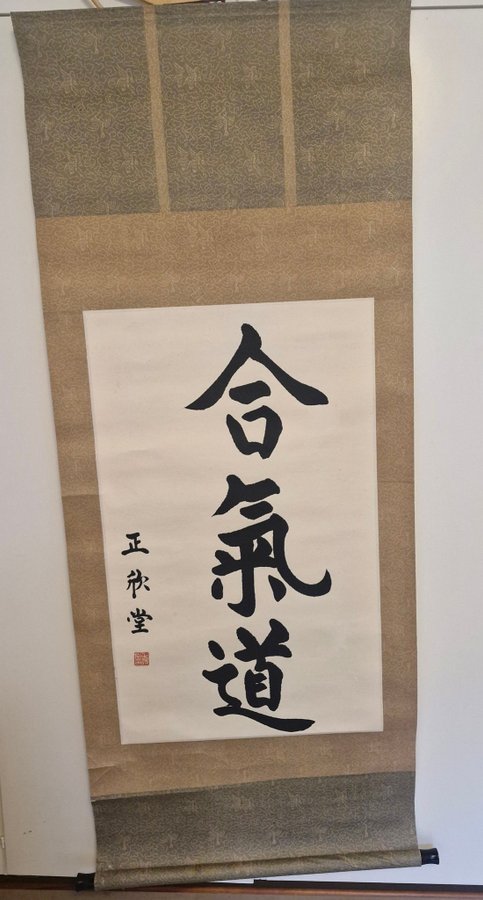 合氣道
正欣堂